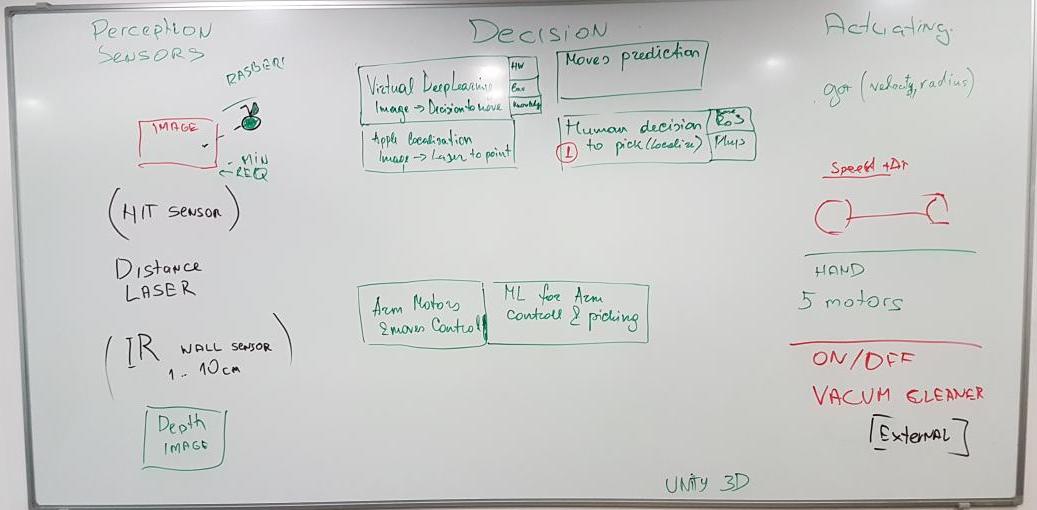 Perception
Sensors
RASBERI
IMAGE
MIN
REQ
(HIT SENSOR)
Distance
LASER
(IR WALL SENSOR
1.. 10cm)
Depth
IMAGE
Decision
Virtual DeepLearning
Image → Decision to move
HW
Apple Localisation
Image → Laser to point
Moves prediction
Human decision
1 to pick (Localize)
ROS
Arm Motors
& moves Control
ML for Arm
controll & picking
UNITY 3D
Actuating.
(velocity, radius)
Speed +Δt
HAND
5 motors
ON/OFF
VACUM CLEANER
[External]